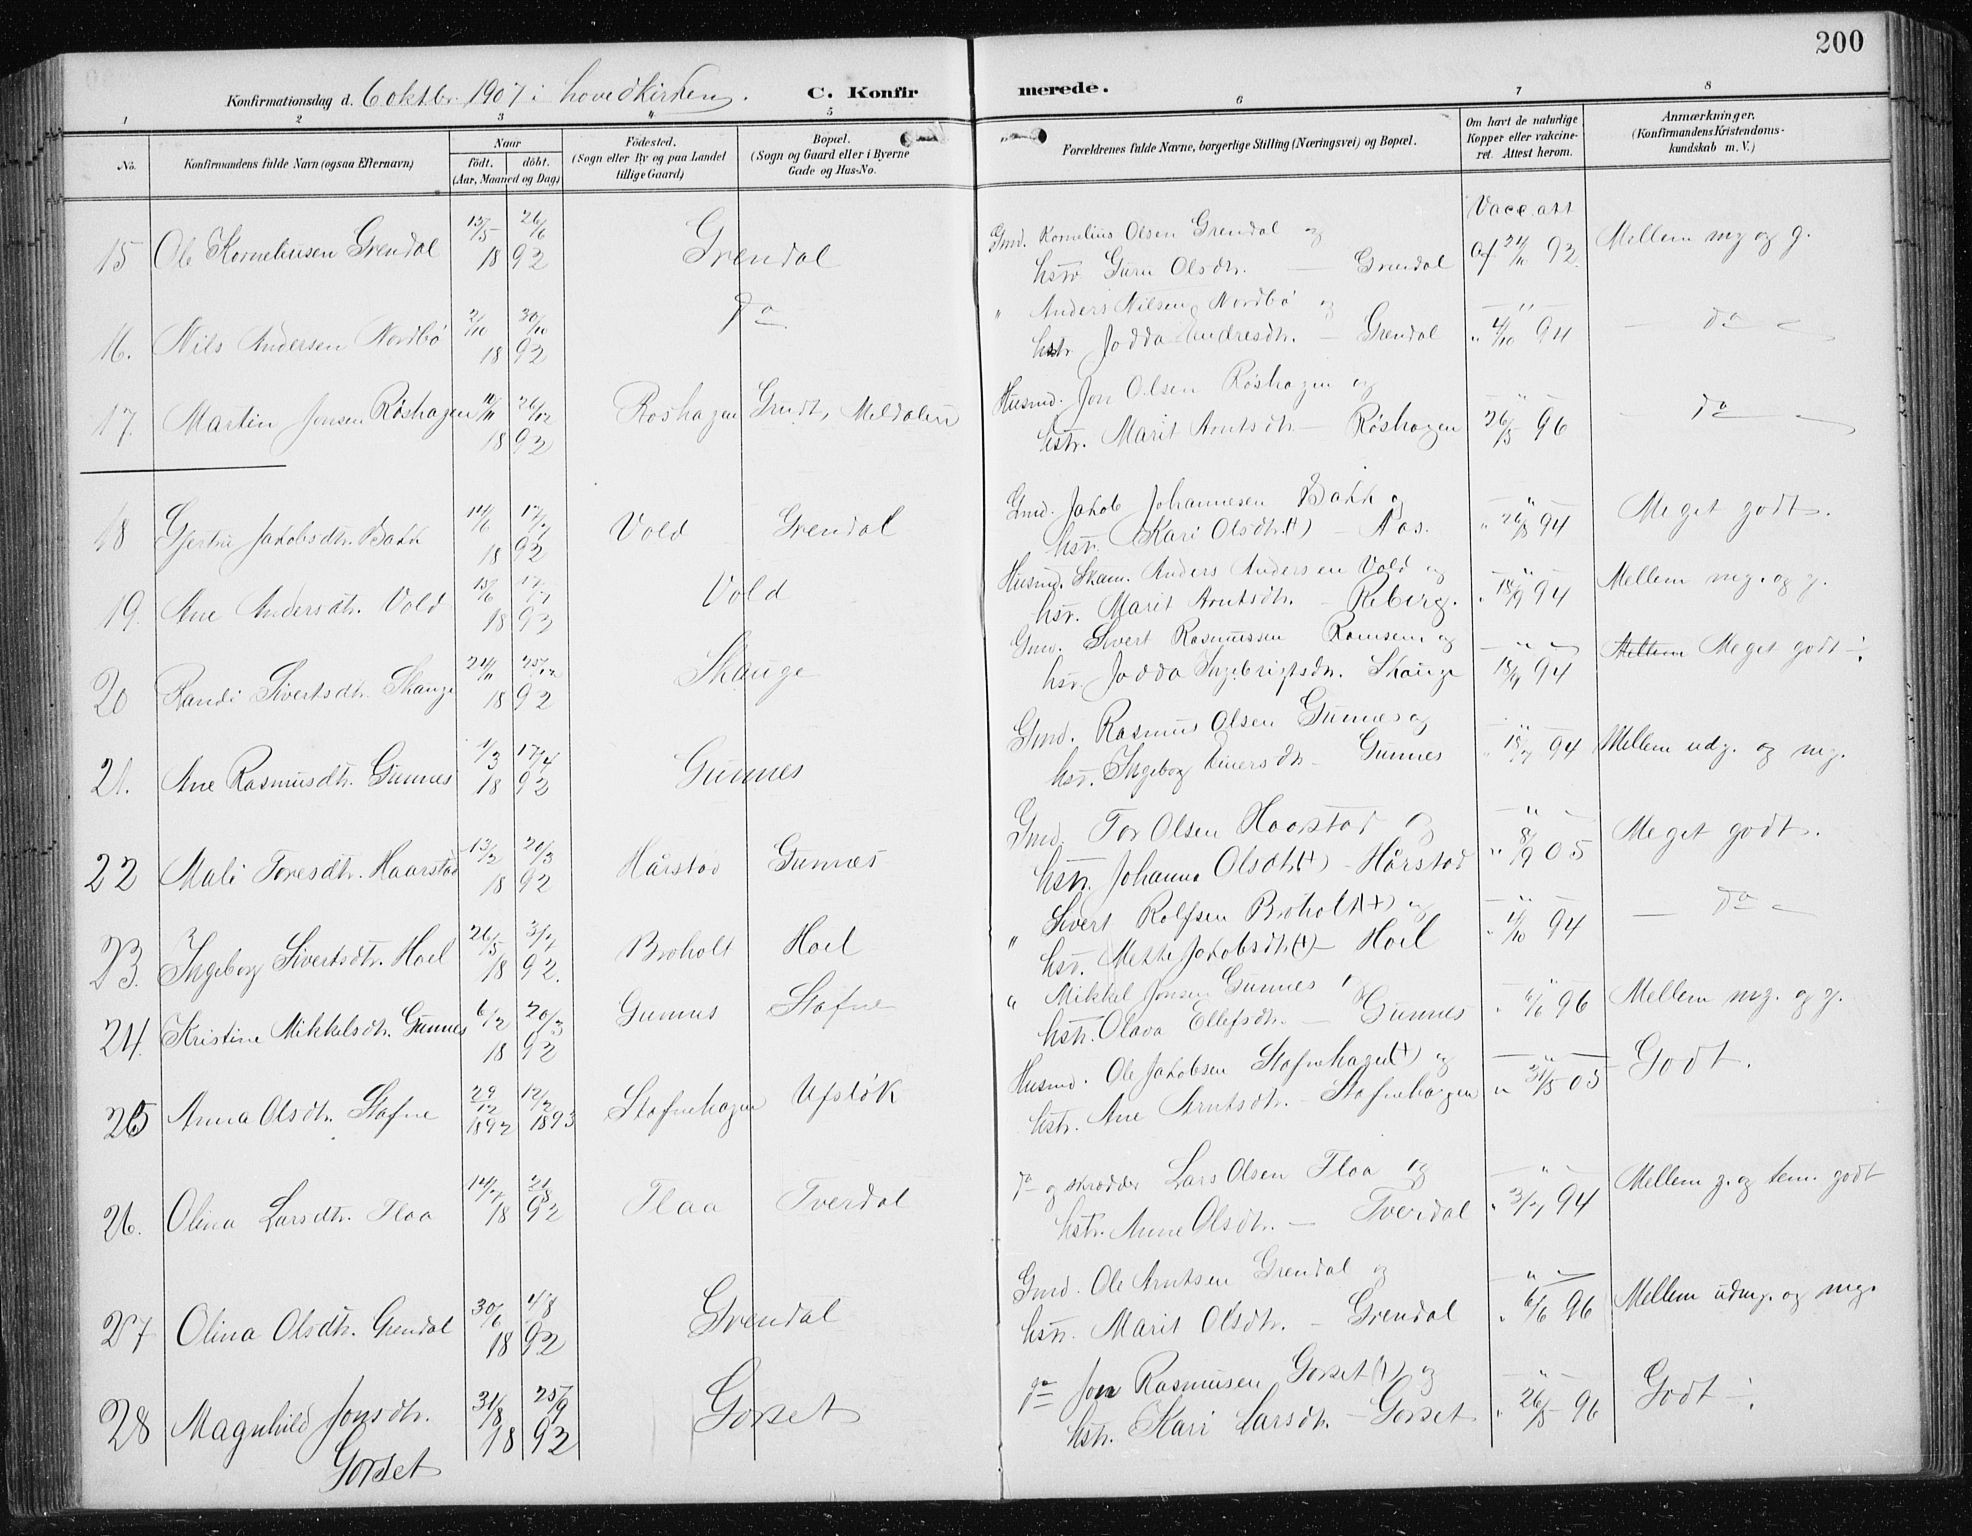 200
Konfirmationsdag d. 6 oktbr. 1907 i hovedkirken. C. Konfirmerede.
1 2 3 4 5 6 7 8
No. Konfirmandens fulde Navn (ogsaa Efternavn) Naar født. døbt. (Aar, Maaned og Dag) Fødested. (Sogn eller By og paa Landet tillige Gaard) Bopæl. (Sogn og Gaard eller i Byerne Gade og Hus-No. Forældrenes fulde Navne, borgerlige Stilling (Næringsvei) og Bopæl. Om havt de naturlige Kopper eller vakcineret. Attest herom. Anmærkninger. (Konfirmandens Kristendomskundskab m. V.)
15 Ole Korneliusen Grendal 15/5 26/6 1892 Grendal Gmd. Kornelius Olsen Grendal og Vacc. att Mellem mg og g.
hstr Guru Olsdtr. — Grendal af 24/10 92.
16. Nils Andersen Nordbø 2/10 30/10 1892 do " Anders Nilsen Nordbø og — " — — do —
hstr. Jodda Andresdtr. — Grendal " 4/10 94
17. Martin Jonsen Røshagen 11/11 26/12 1892 Røshagen Grudt, Meldalen Husmd. Jon Olsen Røshagen og — " — — do —
hstr. Marit Arntsdtr — Røshagen 26/5 96
18 Gjertru Jakobsdtr. Bakk 14/6 17/7 1892 Vold Grendal Gmd. Jakob Johannesen Bakk og — " — Meget godt.
hstr. Kari Olsdtr. (+) — Aas. " 26/8 94
19. Ane Andersdtr. Vold 15/6 17/7 1892 Vold Husmd. Skom. Anders Andersen Vold og — " — Mellem mg. og g.
hstr. Marit Arntsdtr. — Reberg. " 18/9 94
20 Randi Sivertsdtr. Skauge 24/11 25/12 1892 Skauge Gmd. Sivert Rasmussen Ramsem og — " — Mellem Meget godt ÷.
hstr. Jodda Ingebrigtsdtr. Skauge 18/9 94
21. Ane Rasmusdtr. Gunnes 1/3 17/4 1892 Gunnes Gmd. Rasmus Olsen Gunnes og — " — Mellem udg. og mg.
hstr. Ingeborg Einersdtr — Gunnes " 18/7 94
22 Mali Toresdtr. Haarstad 13/2 20/3 1892 Hårstad Gunnes Gmd. Tor Olsen Haarstad og — " — Meget godt.
hstr. Johanna Olsdtr. (+) — Hårstad " 8/9 05
23. Ingeborg Sivertsdtr. Hoel 26/5 3/7 1892. Broholt Hoel " Sivert Rolfsen Broholt (+) og — " — — do —
hstr. Mette Jakobsdtr (+) — Hoel " 1/10 94
24. Kristine Mikkelsdtr. Gunnes 6/2 20/3 1892 Gunnes Stafne " Mikkel Jonsen Gunnes — " — Mellem mg. og g.
hstr. Olava Ellefsdtr. — Gunnes " 6/6 96
25 Anna Olsdtr. Stafne 29/12 1892 12/2 1893 Stafnehagen Ufstøk Husmd. Ole Jakobsen Stafnehagen (+) og — " — Godt.
hstr. Ane Arntsdtr. — Stafnehagen " 31/5 05
26. Olina Larsdtr. Flaa 14/7 21/8 1892 Flaa Tverdal do og skrædder Lars Olsen Flaa og — " — Mellem g. og tem. godt
hstr. Anne Olsdtr. — Tverdal " 3/7 94
27 Olina Olsdtr. Grendal 30/6 4/8 1892 Grendal Gmd. Ole Arntsen Grendal og — " — Mellem udmg. og mg.
hstr. Marit Olsdtr. — Grendal " 6/6 96
28 Magnhild Jonsdtr. Gorset 31/8 25/9 1892 Gorset do Jon Rasmusen Gorset (+) og — " — Godt ÷.
hstr. Kari Larsdtr. — Gorset " 26/5 96